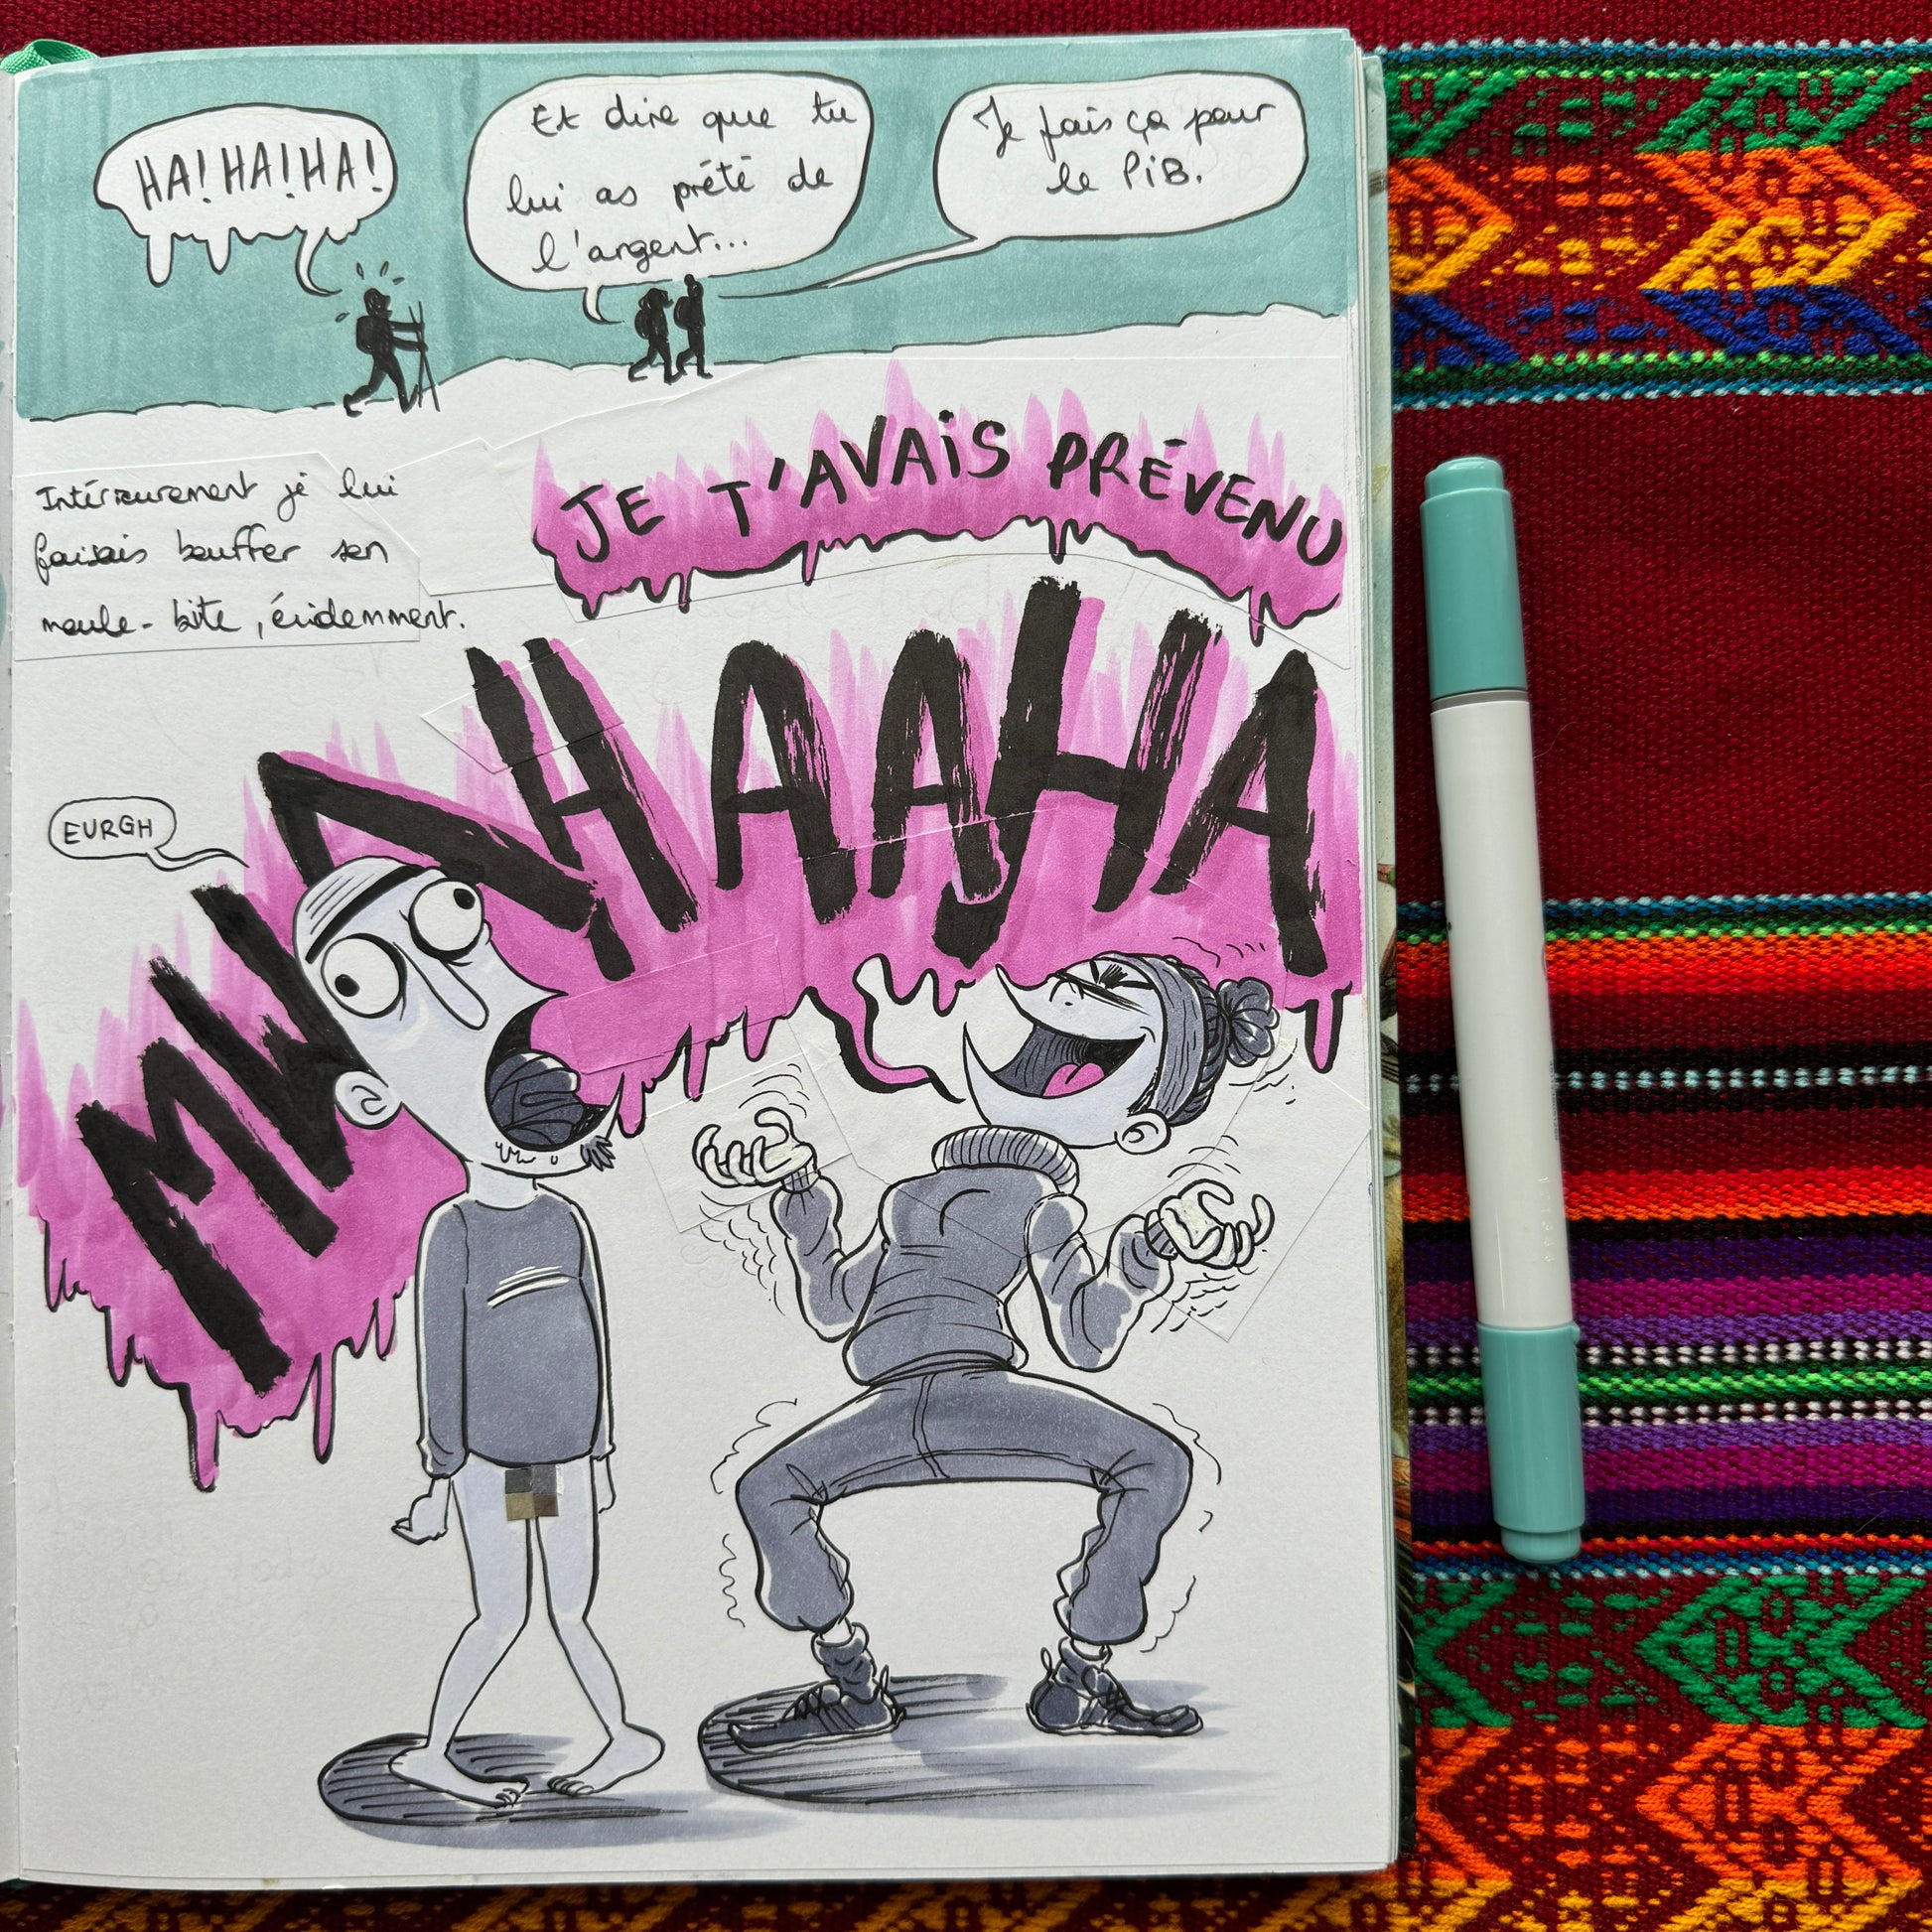 HA! HA! HA!
Et dire que tu
lui as prêté de
l'argent...
Je fais ça pour
le PiB.
Intérieurement je lui
faisais bouffer son
moule-bite, évidemment.
JE T'AVAiS PRÉVENU
MWAHAAHA
EURGH